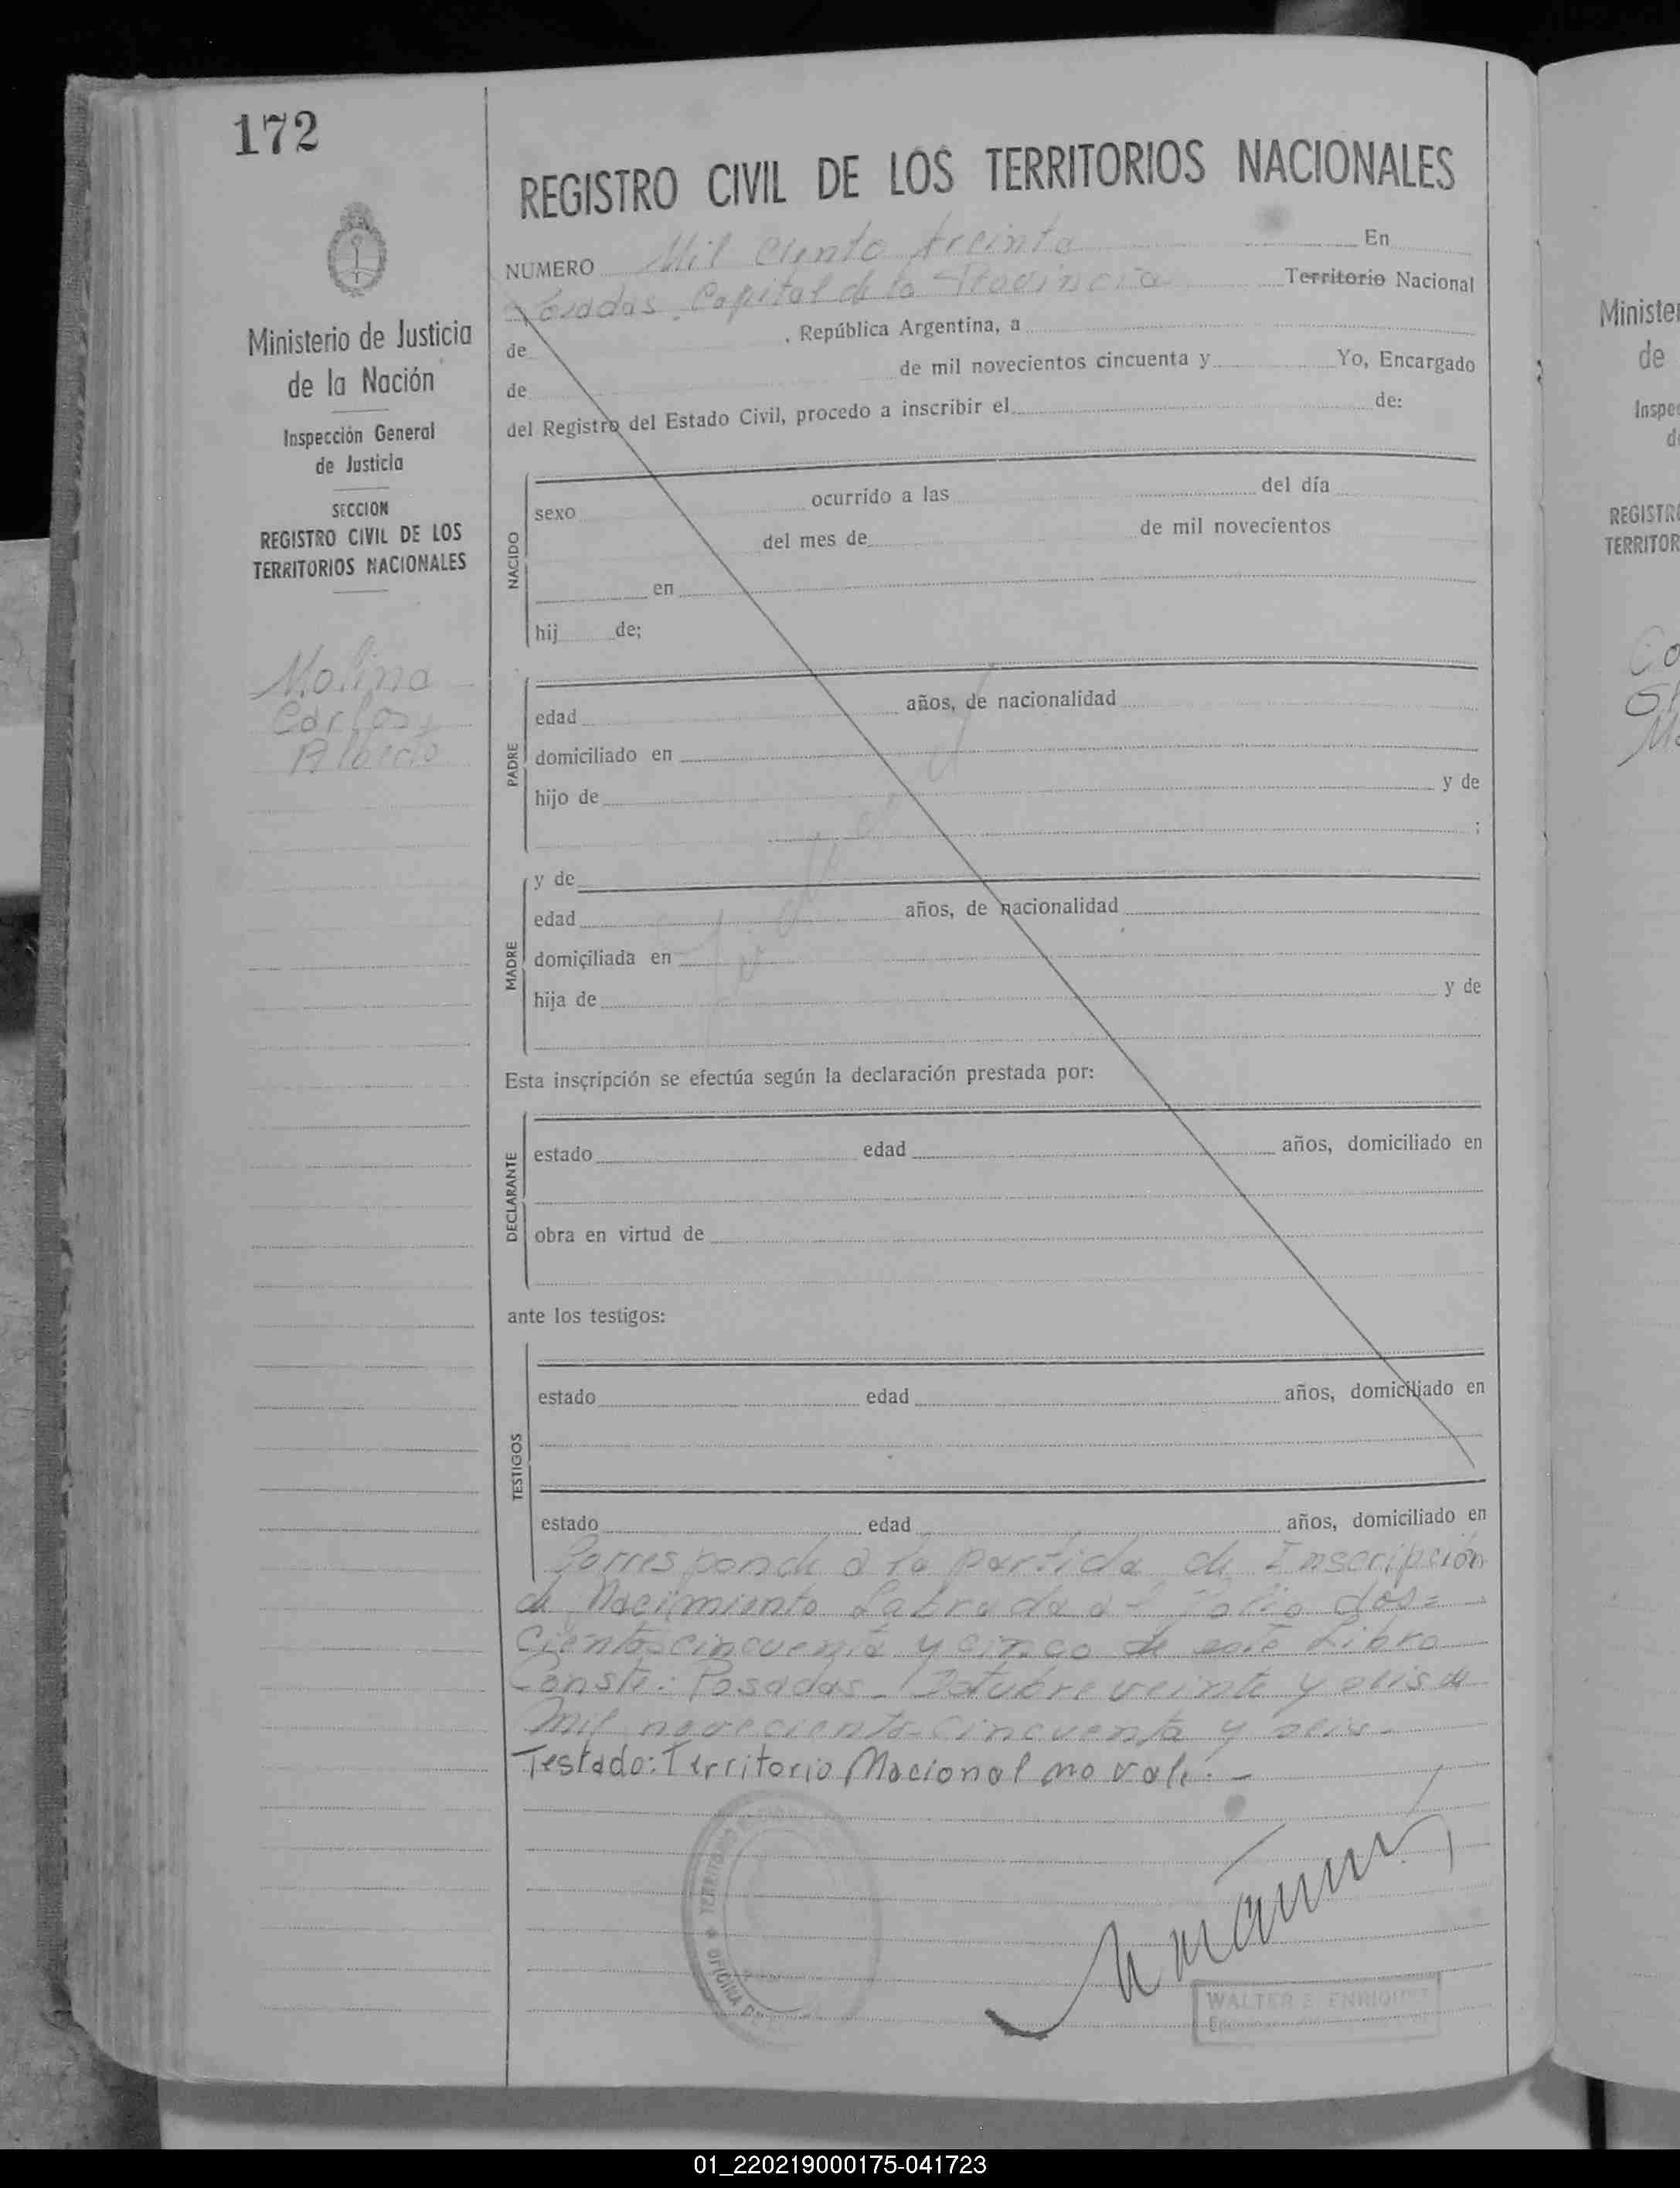 172
REGISTRO CIVIL DE LOS TERRITORIOS NACIONALES
NUMERO Mil Ciento treinta En
Posadas. Capital de la Provincia Territorio Nacional
de , República Argentina, a
de de mil novecientos cincuenta y Yo, Encargado
del Registro del Estado Civil, procedo a inscribir el de:
Ministerio de Justicia
de la Nación
Inspección General
de Justicia
SECCION
REGISTRO CIVIL DE LOS
TERRITORIOS NACIONALES
Molina
Carlos
Alberto
NACIDO
sexo ocurrido a las del día
del mes de de mil novecientos
en
hij de;
PADRE
edad años, de nacionalidad
domiciliado en
hijo de y de
;
MADRE
y de
edad años, de nacionalidad
domiciliada en
hija de y de
Esta inscripción se efectúa según la declaración prestada por:
DECLARANTE
estado edad años, domiciliado en
obra en virtud de
ante los testigos:
TESTIGOS
estado edad años, domiciliado en
estado edad años, domiciliado en
Corresponde a la partida de Inscripción
de Nacimiento Labrada al folio dos=
cientos cincuenta y cinco de este Libro
Conste: Posadas - Octubre veinte y seis de
mil novecientos cincuenta y seis.
Testado: Territorio Nacional no vale. -
TERRITORIO
OFICINA
WALTER E. ENRIQUEZ
Ministe
de
Inspe
d
REGISTR
TERRITOR
Co
M
01_220219000175-041723